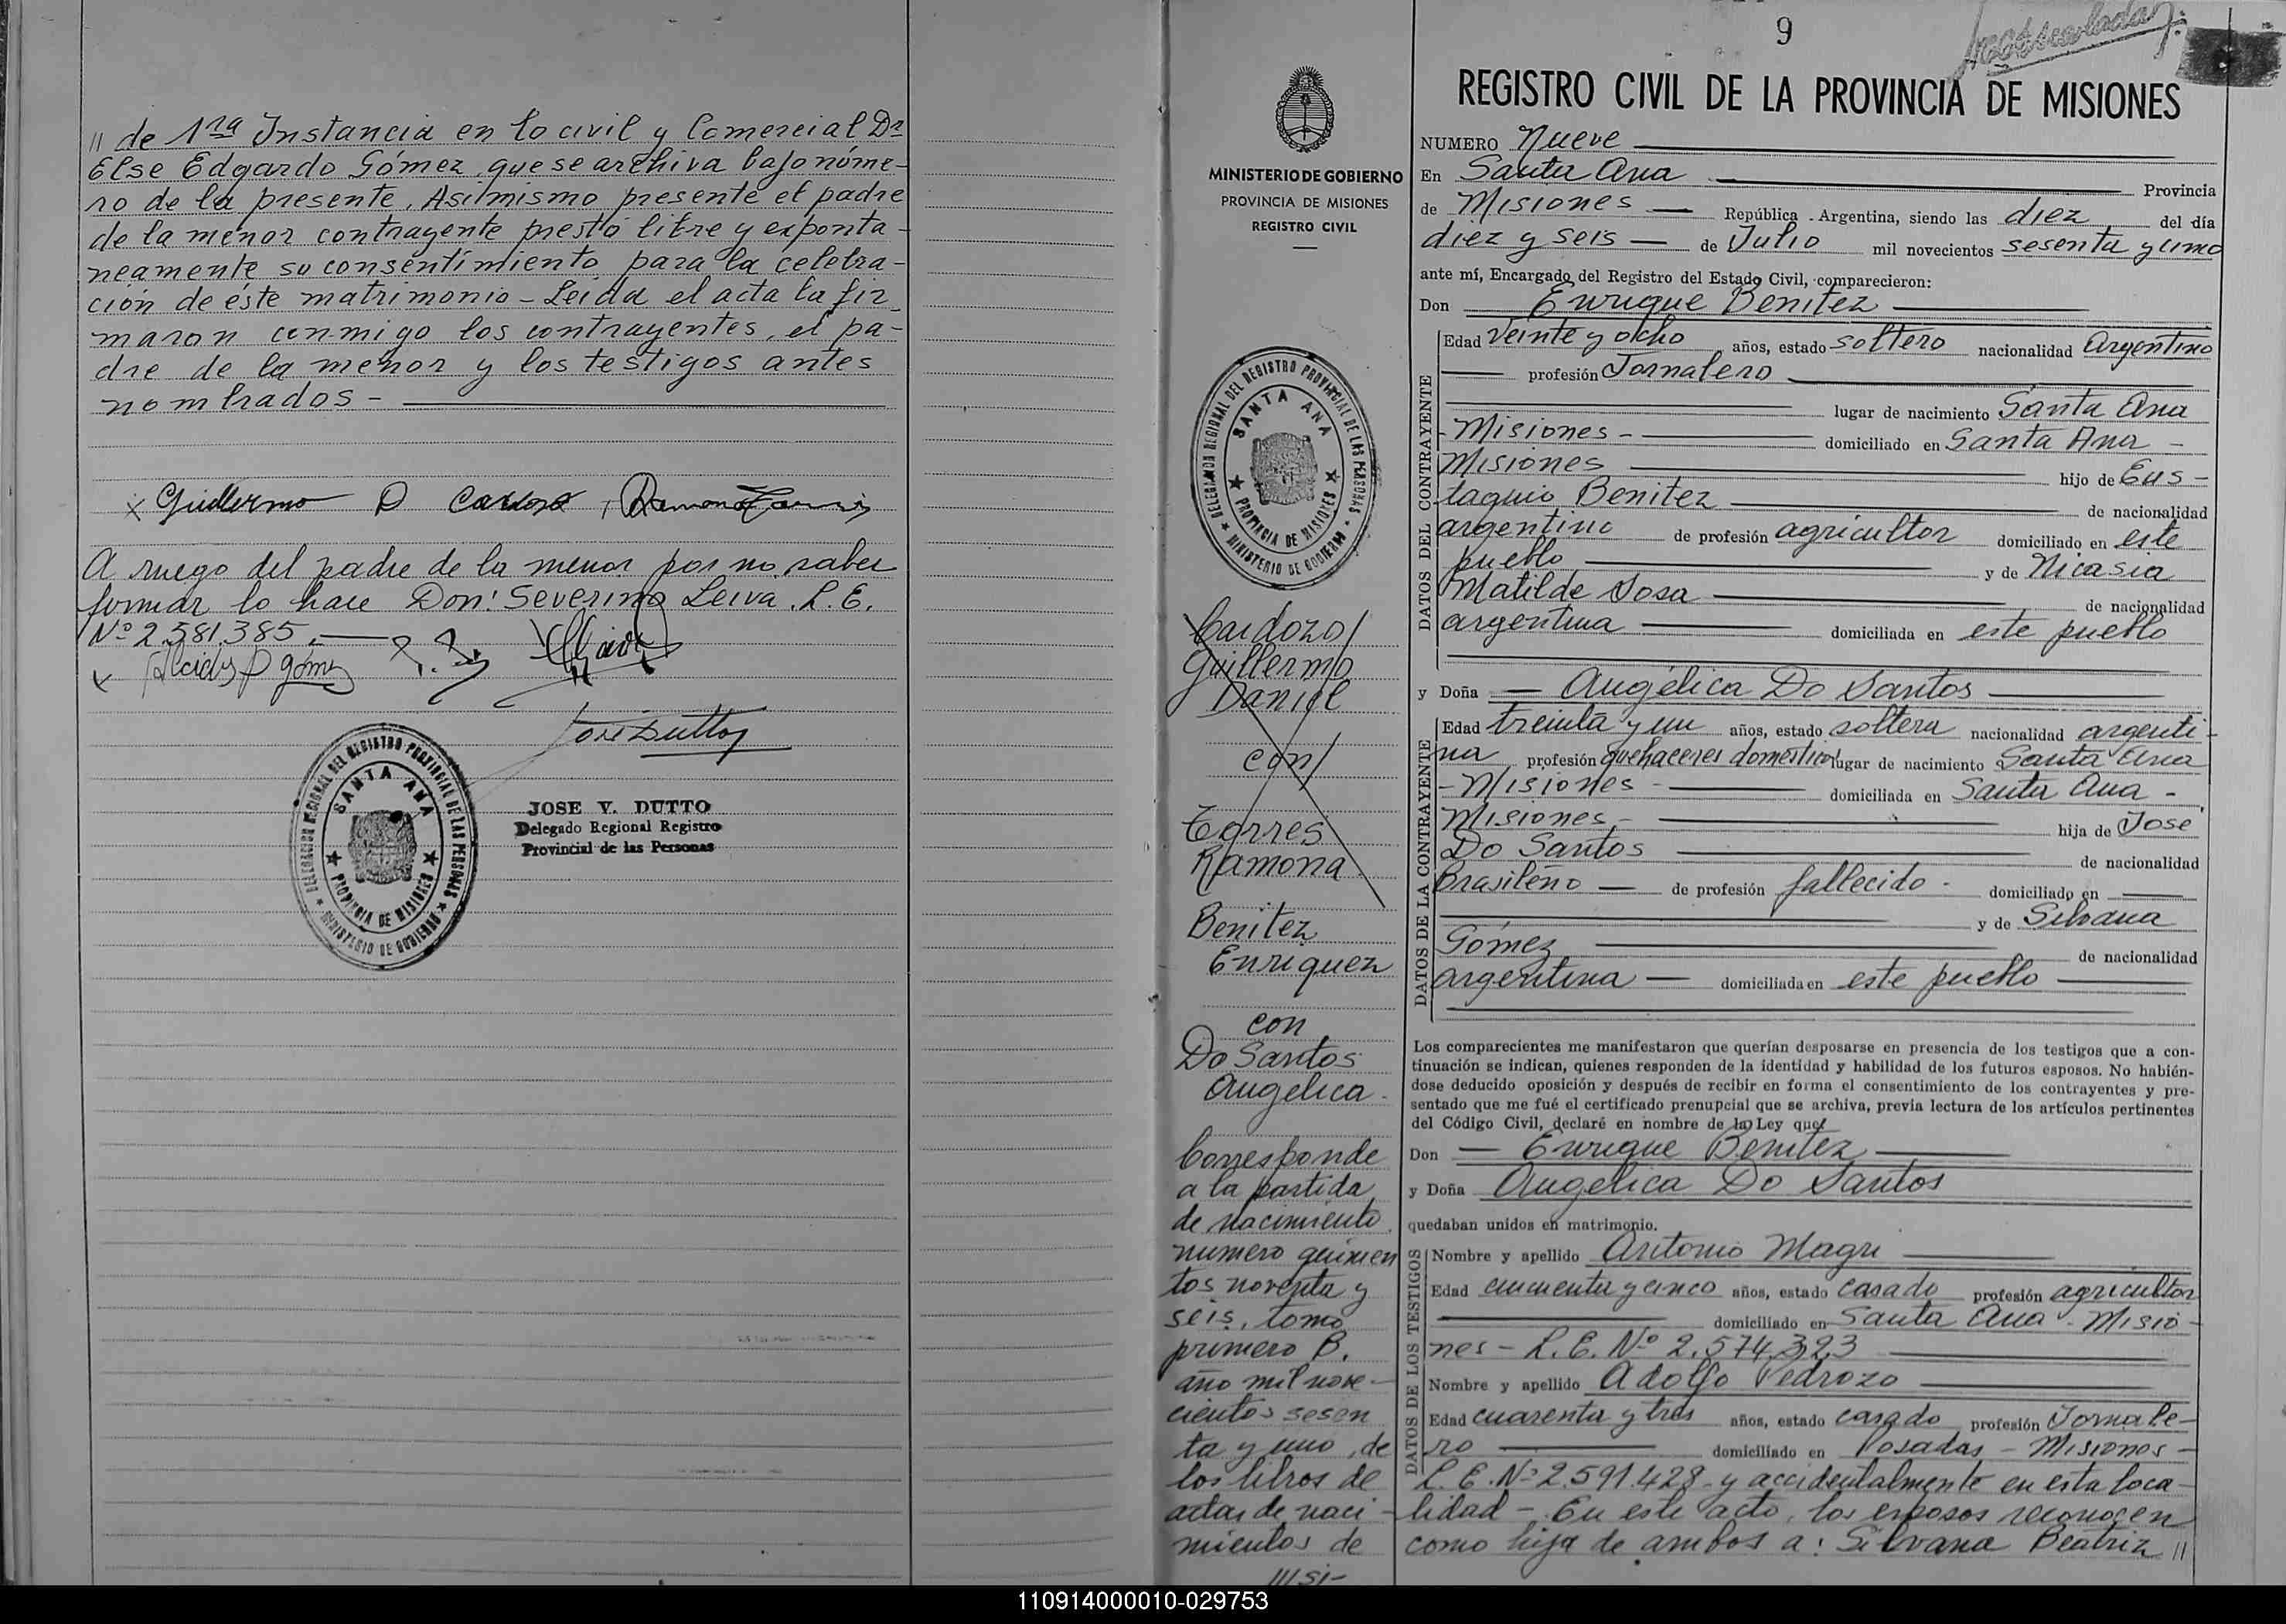 // de 1ra Instancia en lo civil y Comercial Dr
Else Edgardo Gómez, que se archiva bajo núme-
ro de la presente. Asimismo presente el padre
de la menor contrayente prestó libre y exponta-
neamente su consentimiento para la celebra-
ción de éste matrimonio - Leida el acta la fir
maron conmigo los contrayentes, el pa-
dre de la menor y los testigos antes
nombrados -
x Guillermo D Cardozo, Ramona
A ruego del padre de la menor por no saber
firmar lo hace Don: Severino Leiva. L. E.
Nº 2.581.385.
x Alcides P gómez
José Dutto
DELEGACION REGIONAL DEL REGISTRO PROVINCIAL DE LAS PERSONAS
SANTA ANA
PROVINCIA DE MISIONES
MINISTERIO DE GOBIERNO
JOSE V. DUTTO
Delegado Regional Registro
Provincial de las Personas
MINISTERIO DE GOBIERNO
PROVINCIA DE MISIONES
REGISTRO CIVIL
DELEGACION REGIONAL DEL REGISTRO PROVINCIAL DE LAS PERSONAS
SANTA ANA
PROVINCIA DE MISIONES
MINISTERIO DE GOBIERNO
Cardozo
Guillermo
Daniel
con
Torres
Ramona
Benitez
Enriquez
con
Do Santos
Angelica.
Corresponde
a la partida
de nacimiento
numero quinien
tos noventa y
seis, tomo
primero B.
año mil nove-
cientos sesen
ta y uno, de
los libros de
actas de naci-
mientos de
9
REGISTRO CIVIL DE LA PROVINCIA DE MISIONES
NUMERO Nueve
En Santa Ana Provincia
de Misiones República Argentina, siendo las diez del día
diez y seis de Julio mil novecientos sesenta y uno
ante mí, Encargado del Registro del Estado Civil, comparecieron:
Don Enrique Benitez
DATOS DEL CONTRAYENTE
Edad Veinte y ocho años, estado soltero nacionalidad Argentino
profesión Jornalero
lugar de nacimiento Santa Ana
- Misiones - domiciliado en Santa Ana -
Misiones hijo de Eus-
taquio Benitez de nacionalidad
argentino de profesión agricultor domiciliado en este
pueblo y de Nicasia
Matilde Sosa de nacionalidad
argentina domiciliada en este pueblo
y Doña Angélica Do Santos
DATOS DE LA CONTRAYENTE
Edad treinta y un años, estado soltera nacionalidad argenti-
na profesión quehaceres domésticos lugar de nacimiento Santa Ana
- Misiones - domiciliada en Santa Ana -
Misiones - hija de José
Do Santos de nacionalidad
Brasileño de profesión fallecido - domiciliado en
y de Silvana
Gómez de nacionalidad
argentina domiciliada en este pueblo
Los comparecientes me manifestaron que querían desposarse en presencia de los testigos que a con-
tinuación se indican, quienes responden de la identidad y habilidad de los futuros esposos. No habién-
dose deducido oposición y después de recibir en forma el consentimiento de los contrayentes y pre-
sentado que me fué el certificado prenupcial que se archiva, previa lectura de los artículos pertinentes
del Código Civil, declaré en nombre de la Ley que:
Don Enrique Benitez
y Doña Angelica Do Santos
quedaban unidos en matrimonio.
DATOS DE LOS TESTIGOS
Nombre y apellido Antonio Magri
Edad cincuenta y cinco años, estado casado profesión agricultor
domiciliado en Santa Ana - Misio-
nes - L. E. Nº 2.574.323
Nombre y apellido Adolfo Pedrozo
Edad cuarenta y tres años, estado casado profesión Jornale-
ro domiciliado en Posadas - Misiones -
L. E. Nº 2.591.428 y accidentalmente en esta loca-
lidad - En este acto, los esposos reconocen
como hija de ambos a: Silvana Beatriz //
110914000010-029753